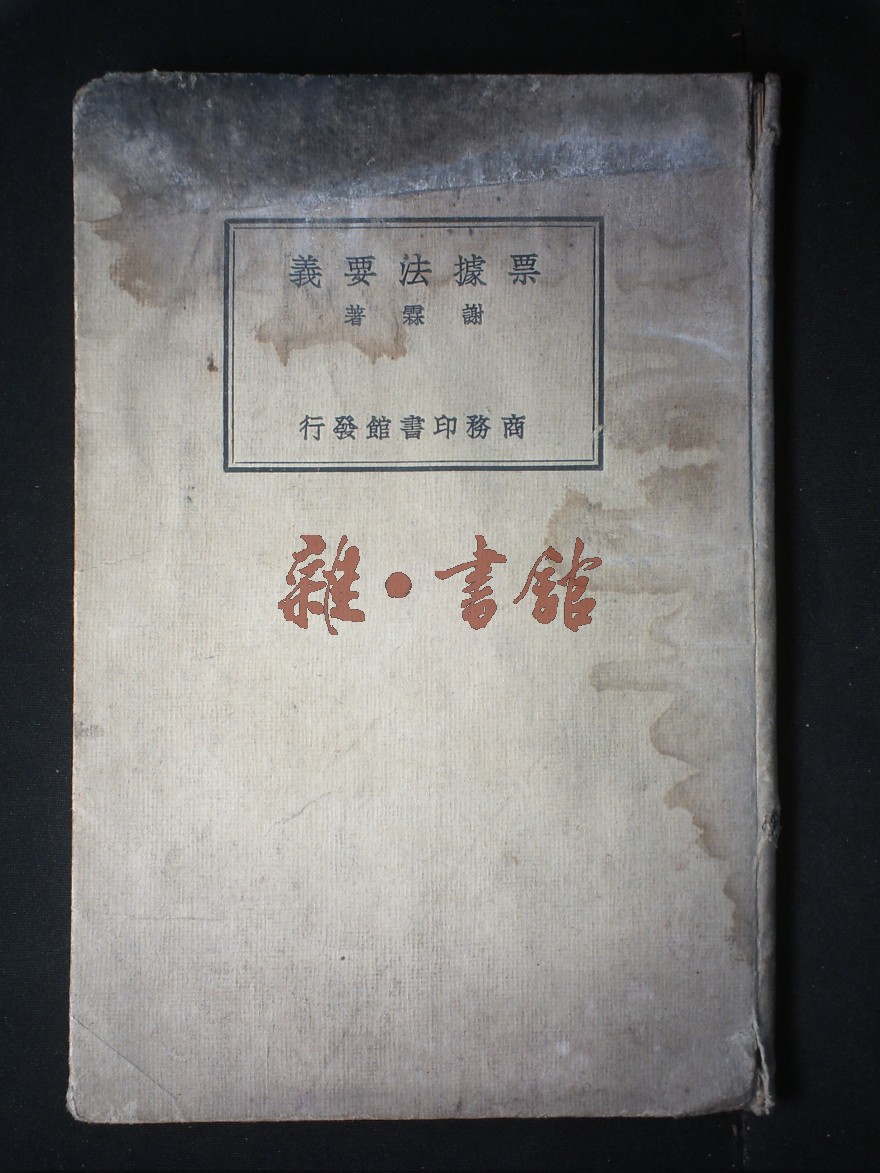 票據法要義
謝霖著
商務印書館發行
雜·書館